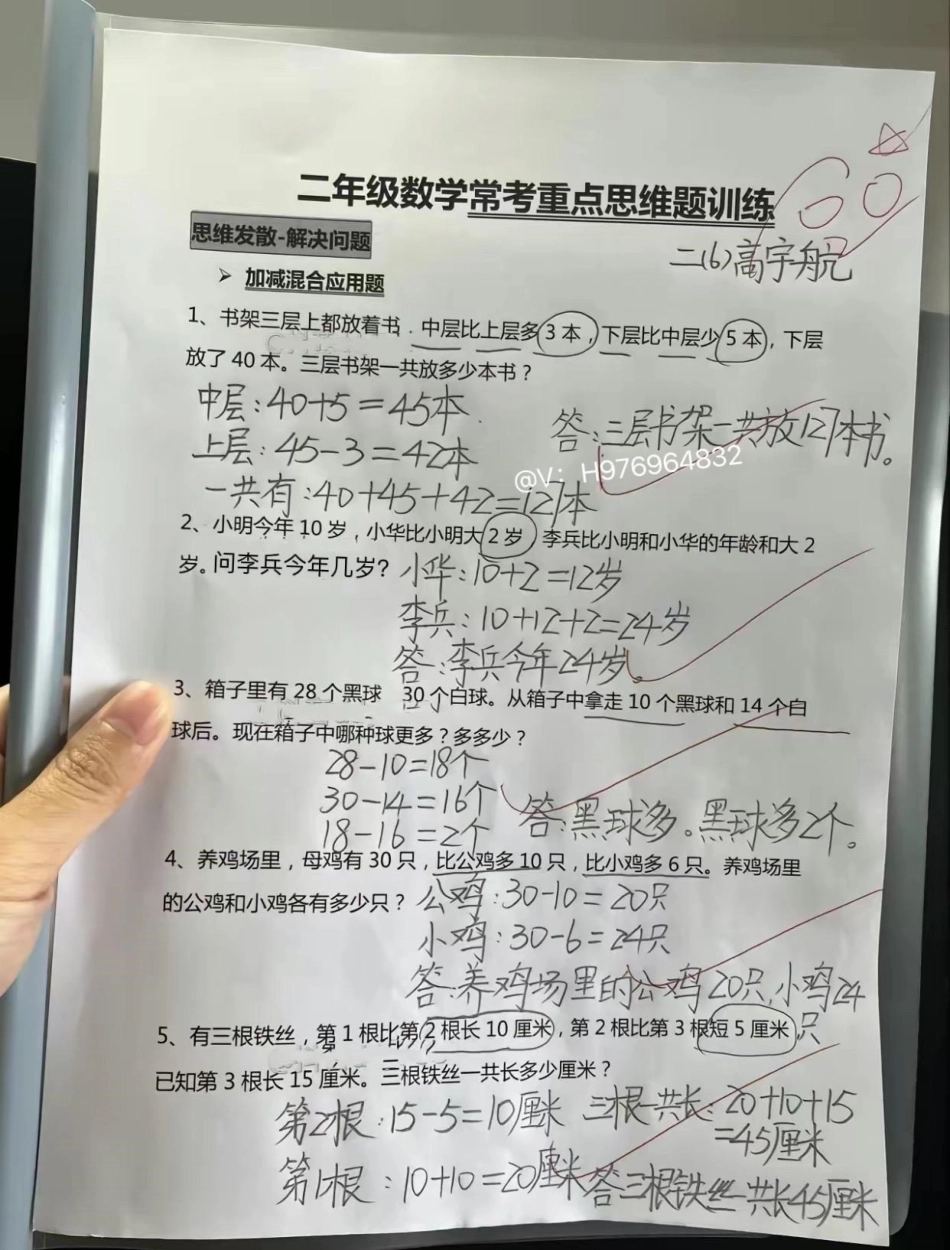 60
二年级数学常考重点思维题训练
二(6)高宇航
思维发散-解决问题
➢ 加减混合应用题
1、书架三层上都放着书．中层比上层多3本，下层比中层少5本，下层
放了40本。三层书架一共放多少本书？
中层：40+5=45本.
答：三层书架一共放127本书。
上层：45-3=42本
@V：H976964832
一共有：40+45+42=127本
2、小明今年10岁，小华比小明大2岁 李兵比小明和小华的年龄和大2
岁。问李兵今年几岁？
小华：10+2=12岁
李兵：10+12+2=24岁
答：李兵今年24岁。
3、箱子里有28个黑球 30个白球。从箱子中拿走10个黑球和14个白
球后。现在箱子中哪种球更多？多多少？
28-10=18个
30-14=16个
答：黑球多。黑球多2个。
18-16=2个
4、养鸡场里，母鸡有30只，比公鸡多10只，比小鸡多6只。养鸡场里
的公鸡和小鸡各有多少只？
公鸡：30-10=20只
小鸡：30-6=24只
答：养鸡场里的公鸡20只，小鸡24
只
5、有三根铁丝，第1根比第2根长10厘米，第2根比第3根短5厘米，
已知第3根长15厘米。三根铁丝一共长多少厘米？
第2根：15-5=10厘米
三根一共长：20+10+15
=45厘米
第1根：10+10=20厘米
答三根铁丝一共长45厘米